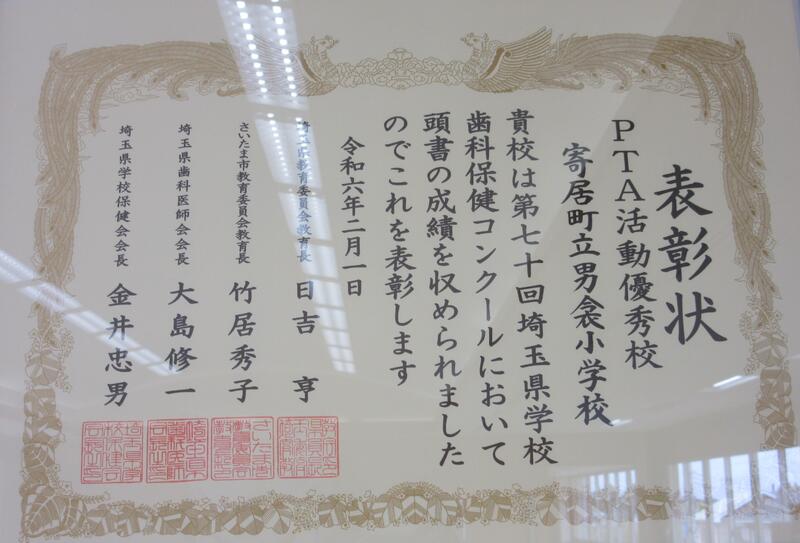 表彰状
PTA活動優秀校
寄居町立男衾小学校
貴校は第七十回埼玉県学校
歯科保健コンクールにおいて
頭書の成績を収められました
のでこれを表彰します
令和六年二月一日
埼玉県教育委員会教育長 日吉亨
さいたま市教育委員会教育長 竹居秀子
埼玉県歯科医師会会長 大島修一
埼玉県学校保健会会長 金井忠男